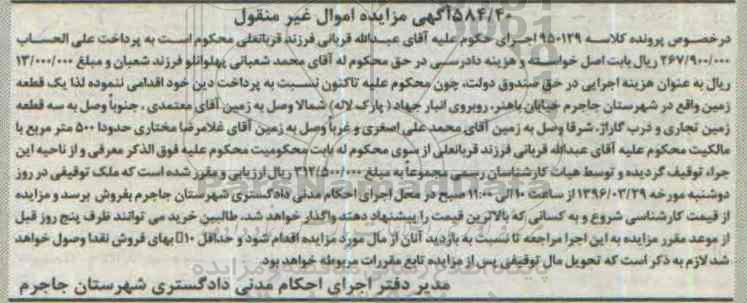 ۵۸۴/۴۰آگهی مزایده اموال غیر منقول
در خصوص پرونده کلاسه ۹۵۰۱۲۹ اجرای حکوم علیه آقای عبدالله قربانی فرزند قربانعلی محکوم است به پرداخت علی الحساب
۲۶۷/۹۰۰/۰۰۰ ریال بابت اصل خواسته و هزینه دادرسی در حق محکوم له آقای محمد شعبانی پهلوانلو فرزند شعبان و مبلغ ۱۳/۰۰۰/۰۰۰
ریال به عنوان هزینه اجرایی در حق صندوق دولت، چون محکوم علیه تاکنون نسبت به پرداخت دین خود اقدامی ننموده لذا یک قطعه
زمین واقع در شهرستان جاجرم خیابان باهنر، روبروی انبار جهاد ( پارک لاله) شمالا وصل به زمین آقای معتمدی . جنوباً وصل به سه قطعه
زمین تجاری و درب گاراژ، شرقا وصل به زمین آقای محمد علی اصغری و غرباً وصل به زمین آقای غلامرضا مختاری حدودا ۵۰۰ متر مربع با
مالکیت محکوم علیه آقای عبدالله قربانی فرزند قربانعلی از سوی محکوم له بابت محکومیت محکوم علیه فوق الذکر معرفی و از ناحیه این
اجراء توقیف گردیده و توسط هیات کارشناسان رسمی مجموعاً به مبلغ ۳۱۲/۵۰۰/۰۰۰ ریال ارزیابی و مقرر شده است که ملک توقیفی در روز
دوشنبه مورخه ۱۳۹۶/۰۳/۲۹ از ساعت ۱۰ الی ۱۱:۰۰ صبح در محل اجرای احکام مدنی دادگستری شهرستان جاجرم بفروش برسد و مزایده
از قیمت کارشناسی شروع و به کسانی که بالاترین قیمت را پیشنهاد دهند واگذار خواهد شد. طالبین خرید می توانند ظرف پنج روز قبل
از موعد مقرر مزایده به این اجرا مراجعه تا نسبت به بازدید آنان از مال مورد مزایده اقدام شود و حداقل ۱۰٪ بهای فروش نقدا وصول خواهد
شد لازم به ذکر است که تحویل مال توقیفی پس از مزایده تابع مقررات مربوطه خواهد بود.
مدیر دفتر اجرای احکام مدنی دادگستری شهرستان جاجرم